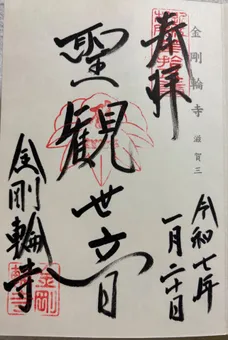 奉拝
金剛輪寺 滋賀三
聖観世音
令和七年
一月二十日
金剛輪寺